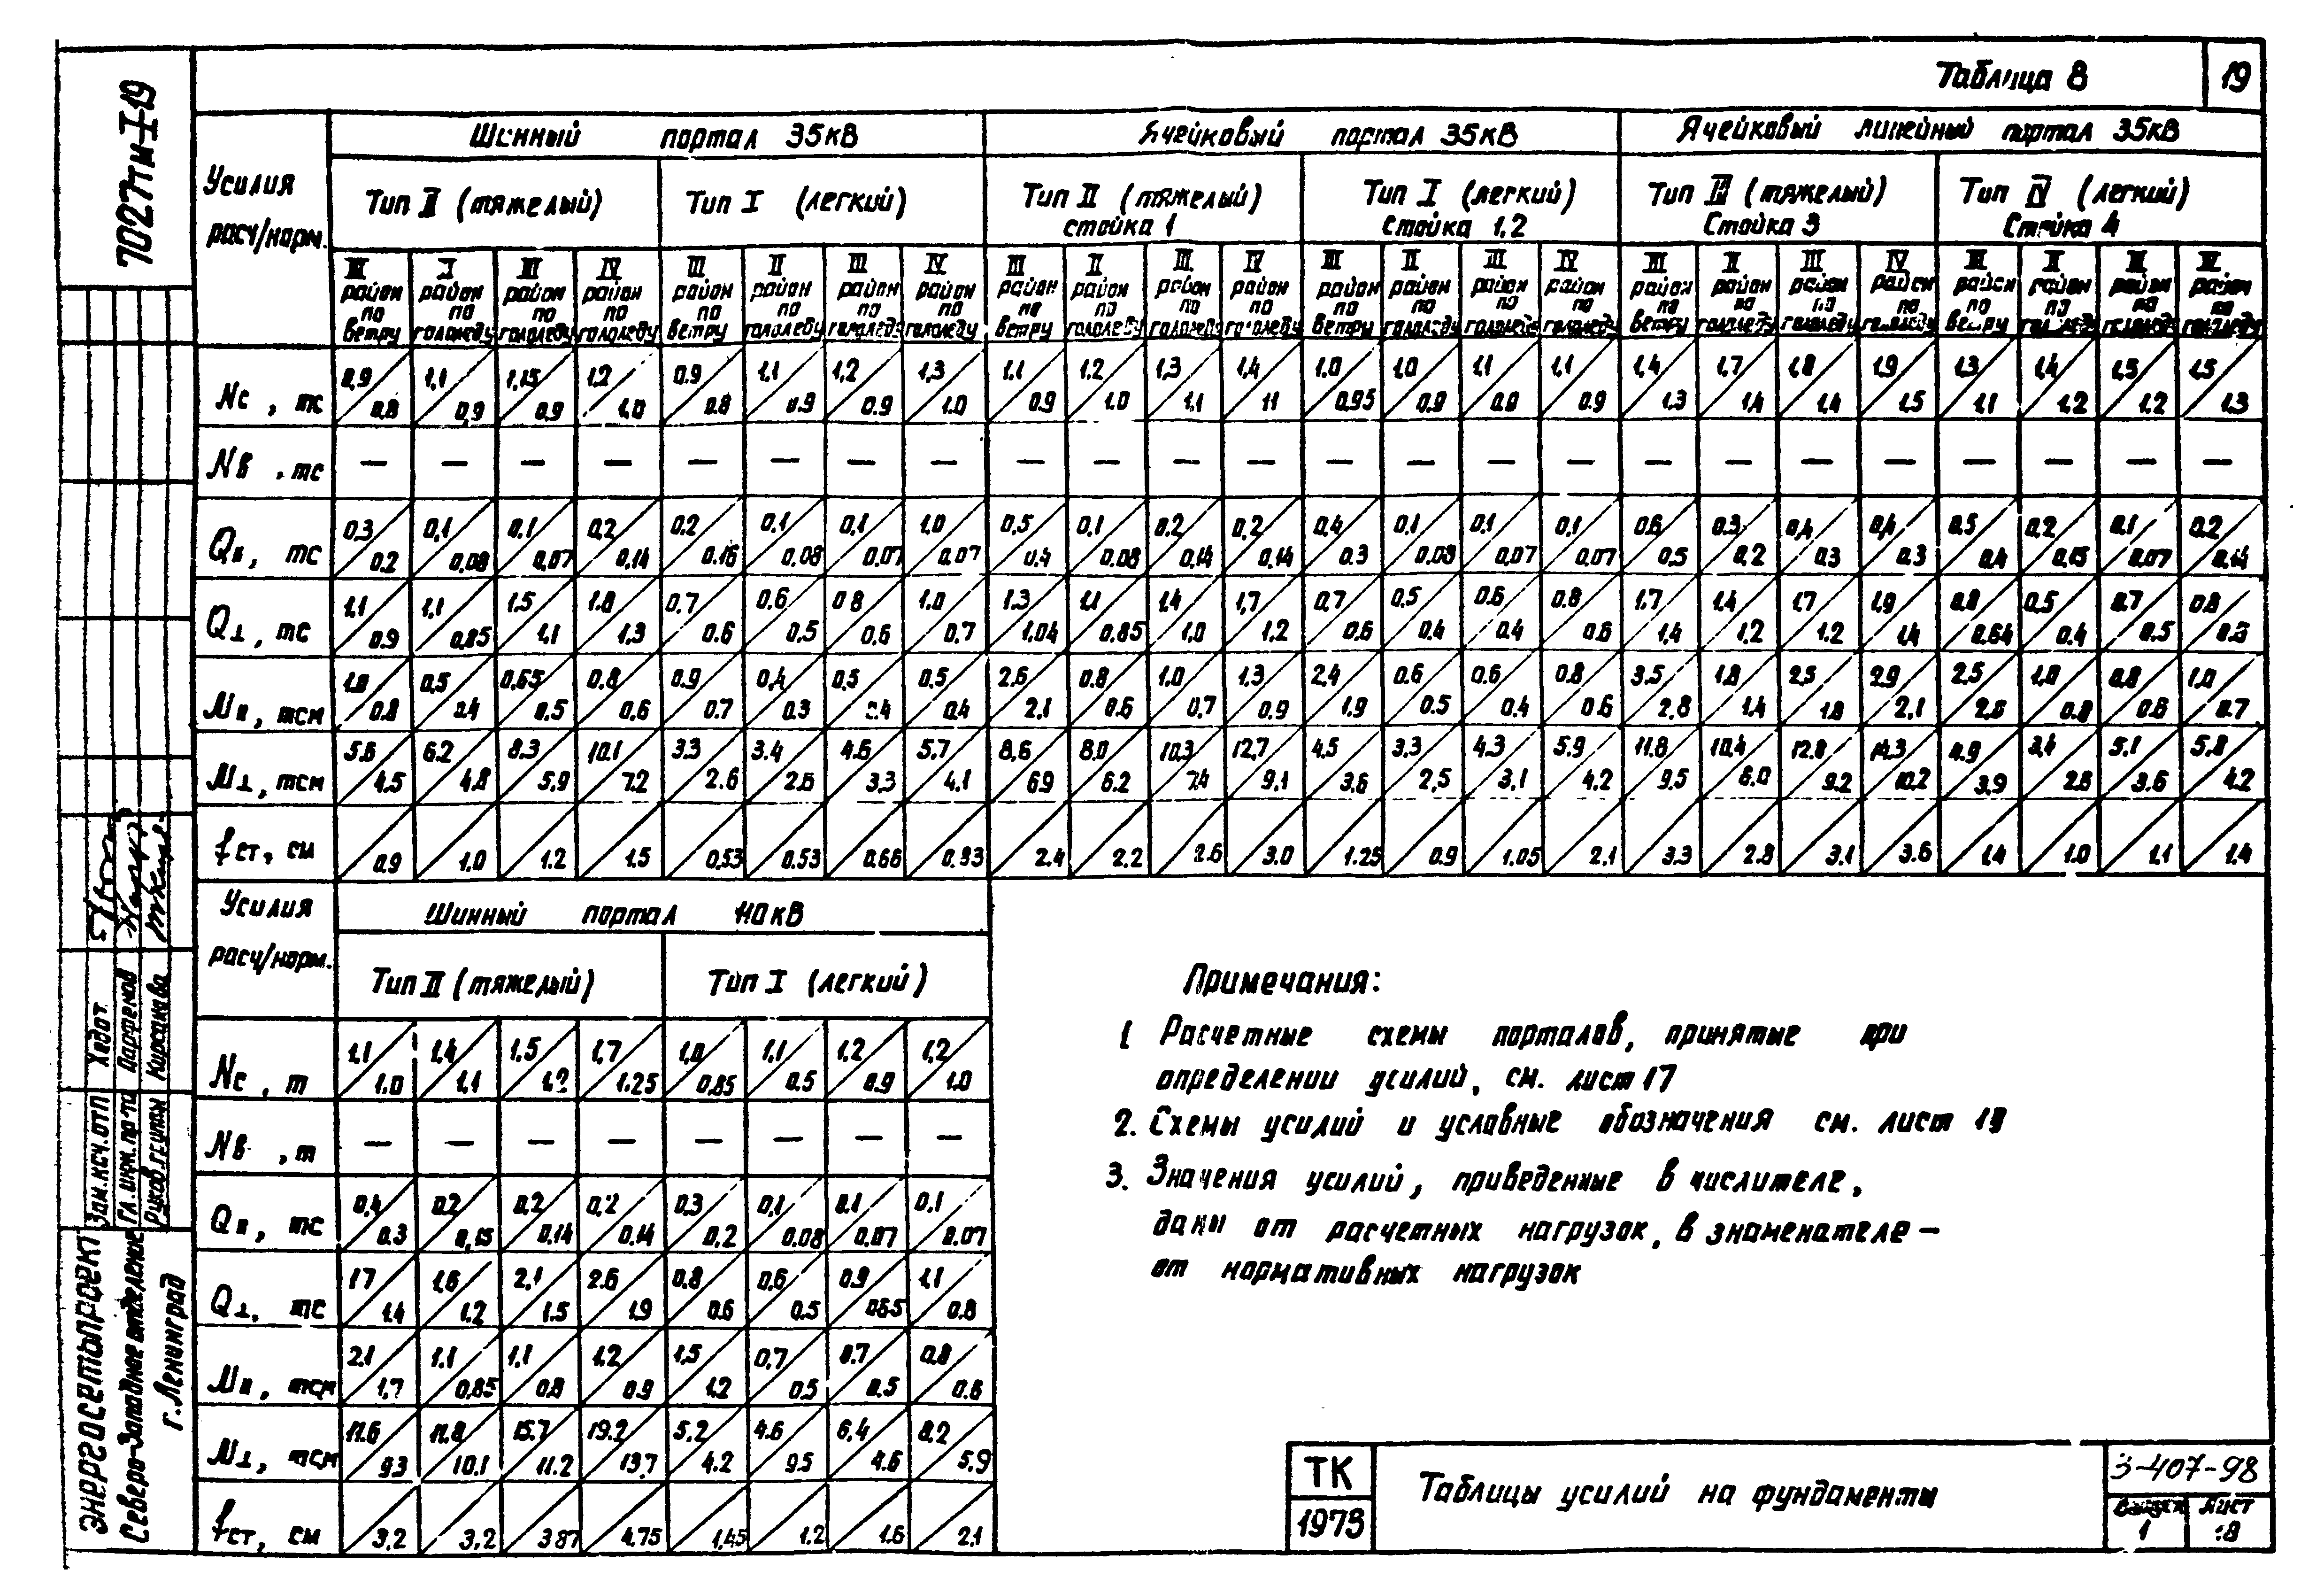 Таблица 8
19
7027тм-I-19
Усилия
расч/норм.
Шинный портал 35кВ
Ячейковый портал 35кВ
Ячейковый линейный портал 35кВ
Тип II (тяжелый)
Тип I (легкий)
Тип II (тяжелый)
стойка 1
Тип I (легкий)
Стойка 1,2
Тип III (тяжелый)
Стойка 3
Тип IV (легкий)
Стойка 4
III район по ветру
I район по гололеду
III район по гололеду
IV район по гололеду
III район по ветру
II район по гололеду
III район по гололеду
IV район по гололеду
III район по ветру
II район по гололеду
III район по гололеду
IV район по гололеду
III район по ветру
II район по гололеду
III район по гололеду
IV район по гололеду
III район по ветру
II район по гололеду
III район по гололеду
IV район по гололеду
III район по ветру
II район по гололеду
III район по гололеду
IV район по гололеду
Nс, тс 0,9/0.8 1,1/0,9 1,15/0.9 1,2/1.0 0.9/0.8 1,1/0.9 1,2/0.9 1,3/1.0 1,1/0.9 1.2/1.0 1,3/1.1 1,4/11 1.0/0.95 1.0/0.9 1.1/0.9 1.1/0.9 1,4/1.3 1,7/1.4 1.8/1.4 1.9/1.5 1.3/1.1 1.4/1.2 1.5/1.2 1.5/1.3
Nв, тс — — — — — — — — — — — — — — — — — — — — — — — —
Qıı, тс 0.3/0.2 0,1/0,08 0.1/0,07 0,2/0.14 0.2/0.16 0.1/0.08 0.1/0.07 1.0/0.07 0,5/0.4 0.1/0.08 0.2/0.14 0.2/0.14 0.4/0.3 0.1/0.08 0.1/0.07 0.1/0.07 0.6/0.5 0.3/0.2 0.4/0.3 0.4/0.3 0.5/0.4 0.2/0.15 0.1/0.07 0.2/0.14
Q⊥, тс 1.1/0.9 1.1/0.85 1.5/1.1 1.8/1.3 0.7/0.6 0.6/0.5 0 8/0.6 1.0/0.7 1.3/1.04 1.1/0.85 1.4/1.0 1,7/1.2 0.7/0.6 0.5/0.4 0.6/0.4 0.8/0.6 1.7/1.4 1.4/1.2 1.7/1.2 1.9/1.4 0.8/0.64 0.5/0.4 0.7/0.5 0.8
Mıı, тсм 1.0/0.8 0.5/0.4 0.65/0.5 0.8/0.6 0.9/0.7 0,4/0.3 0.5/0.4 0.5/0.4 2.6/2.1 0.8/0.6 1.0/0,7 1.3/0.9 2.4/1.9 0.6/0.5 0.6/0.4 0.8/0.6 3.5/2.8 1.8/1.4 2.5/1.8 2.9/2.1 2.5 1.0/0.8 0.8/0.6 1.0/0.7
M⊥, тсм 5.6/4.5 6.2/4.8 8.3/5,9 10.1/7.2 3.3/2.6 3.4/2.6 4.6/3,3 5.7/4.1 8,6/6.9 8.0/6.2 10.3/7.4 12,7/9.1 4.5/3.6 3.3/2,5 4.3/3.1 5.9/4.2 11.8/9.5 10.4/8.0 12.8/9.2 14.3/10.2 4.9/3.9 3.4/2.6 5.1/3.6 5.8/4.2
fст, см 0.9 1.0 1.2 1.5 0.53 0.53 0.66 0.93 2.4 2.2 2.6 3.0 1.25 0.9 1.05 2.1 3.3 2.8 3.1 3.6 1.4 1.0 1.1 1.4
Усилия
расч/норм.
Шинный портал 110кВ
Тип II (тяжелый)
Тип I (легкий)
Nс, т 1,1/1.0 1,4/1.1 1,5/1.2 1,7/1.25 1,0/0.85 1,1/0.5 1,2/0.9 1,2/1.0
Nв, т — — — — — — — —
Qıı, тс 0.4/0.3 0.2/0,15 0.2/0.14 0.2/0.14 0.3/0.2 0.1/0.08 0.1/0.07 0.1/0.07
Q⊥, тс 17/1.4 1.6/1.2 2.1/1.5 2.6/1.9 0.8/0.6 0.6/0.5 0.9/0.65 1.1/0.8
Mıı, тсм 2.1/1.7 1.1/0.85 1.1/0.8 1.2/0.9 1,5/1.2 0.7/0.5 0.7/0.5 0.8/0.6
M⊥, тсм 11.6/9.3 11.8/10.1 15.7/11.2 19.2/13,7 5.2/4.2 4.6/9.5 6,4/4.6 8.2/5.9
fст, см 3.2 3.2 3.87 4.75 1.45 1.2 1.6 2.1
Примечания:
1 Расчетные схемы порталов, принятые при
определении усилий, см. лист 17
2. Схемы усилий и условные обозначения см. лист 19
3. Значения усилий, приведенные в числителе,
даны от расчетных нагрузок, в знаменателе —
от нормативных нагрузок
ТК
1973
Таблицы усилий на фундаменты
3-407-98
Выпуск
1
Лист
18
Зам.нач.отп Хедот
Гл.инж.пр-та Парфенов
Руков.группы Кирсанова
ЭНЕРГОСЕТЬПРОЕКТ
Северо-Западное отделение
г.Ленинград